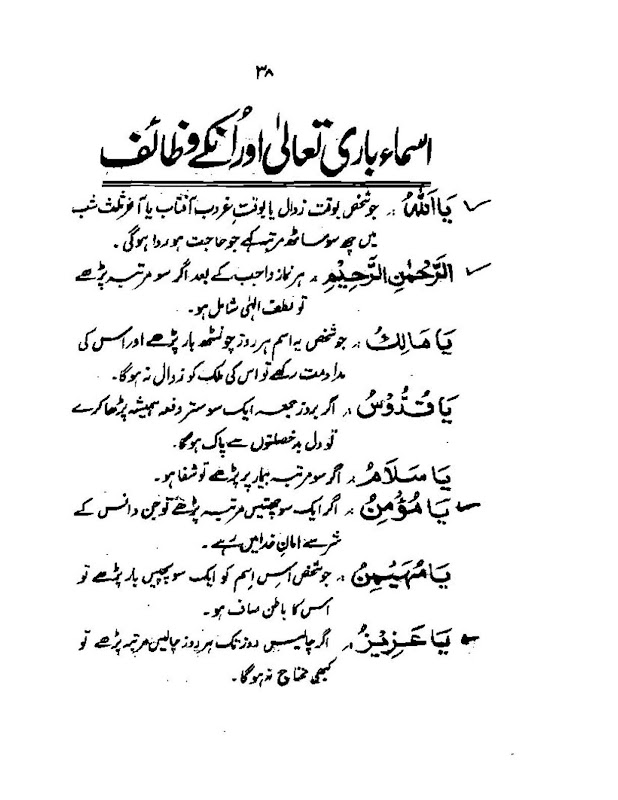 ۳۸
اسماء باری تعالیٰ اور اُنکے وظائف
یَا اَللّٰہُ :۔ جو شخص بوقت زوال یا بوقتِ غروب آفتاب یا آخر ثلث شب
میں چھ سو ساٹھ مرتبہ کہے جو حاجت ہو روا ہوگی ۔
الرَّحْمٰنِ الرَّحِیْمِ :۔ ہر نماز واجب کے بعد اگر سو مرتبہ پڑھے
تو لطف الہٰی شامل ہو۔
یَا مَالِکُ :۔ جو شخص یہ اسم ہر روز چونسٹھ بار پڑھے اور اس کی
مداومت رکھے تو اس کی ملک کو زوال نہ ہوگا۔
یَا قُدُّوْسُ :۔ اگر بروز جمعہ ایک سو ستر دفعہ ہمیشہ پڑھا کرے
تو دل بد خصلتوں سے پاک ہوگا۔
یَا سَلَامُ :۔ اگر سو مرتبہ بیمار پر پڑھے تو شفا ہو۔
یَا مُؤْمِنُ :۔ اگر ایک سو چھتیس مرتبہ پڑھے تو جن و انس کے
شر سے امانِ خدا میں رہے ۔
یَا مُہَیْمِنُ :۔ جو شخص اس اِسم کو ایک سو پچیس بار پڑھے تو
اس کا باطن صاف ہو۔
یَا عَزِیْزُ :۔ اگر چالیس روز تک ہر روز چالیس مرتبہ پڑھے تو
کبھی محتاج نہ ہوگا۔